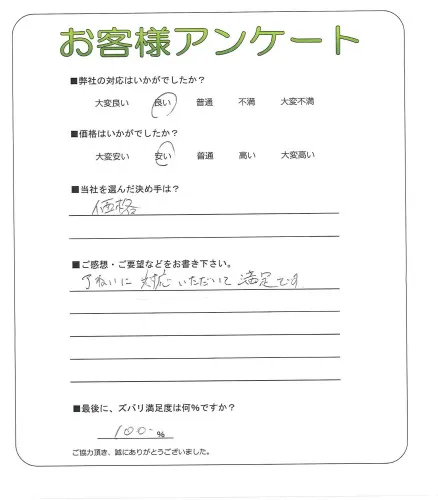 お客様アンケート
■弊社の対応はいかがでしたか？
大変良い 良い 普通 不満 大変不満
■価格はいかがでしたか？
大変安い 安い 普通 高い 大変高い
■当社を選んだ決め手は？
価格
■ご感想・ご要望などをお書き下さい。
丁ねいに対応いただいて満足です
■最後に、ズバリ満足度は何%ですか？
100 %
ご協力頂き、誠にありがとうございました。